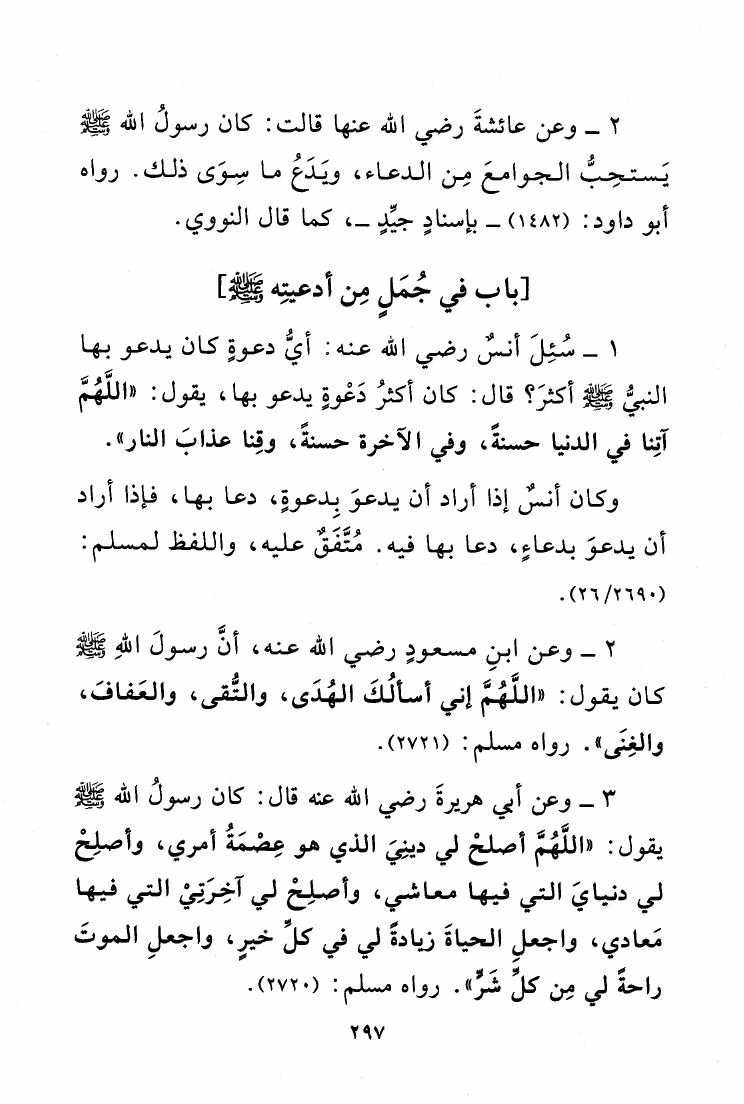 ٢ ـ وعن عائشةَ رضي الله عنها قالت: كان رسولُ الله ﷺ
يَستحِبُّ الجوامعَ مِن الدعاء، ويَدَعُ ما سِوَى ذلك. رواه
أبو داود: (١٤٨٢) ـ بإسنادٍ جيِّدٍ ـ، كما قال النووي.
[باب في جُمَلٍ مِن أدعيتِه ﷺ]
١ ـ سُئِلَ أنسٌ رضي الله عنه: أيُّ دعوةٍ كان يدعو بها
النبيُّ ﷺ أكثرَ؟ قال: كان أكثرُ دَعْوةٍ يدعو بها، يقول: «اللَّهُمَّ
آتِنا في الدنيا حسنةً، وفي الآخرة حسنةً، وقِنا عذابَ النار».
وكان أنسٌ إذا أراد أن يدعوَ بِدعوةٍ، دعا بها، فإذا أراد
أن يدعوَ بدعاءٍ، دعا بها فيه. مُتَّفَقٌ عليه، واللفظ لمسلم:
(٢٦/٢٦٩٠).
٢ ـ وعن ابنِ مسعودٍ رضي الله عنه، أنَّ رسولَ اللهِ ﷺ
كان يقول: «اللَّهُمَّ إني أسألُكَ الهُدَى، والتُّقى، والعَفافَ،
والغِنَى». رواه مسلم: (٢٧٢١).
٣ ـ وعن أبي هريرةَ رضي الله عنه قال: كان رسولُ الله ﷺ
يقول: «اللَّهُمَّ أصلحْ لي دينِيَ الذي هو عِصْمَةُ أمري، وأصلِحْ
لي دنيايَ التي فيها معاشي، وأصلِحْ لي آخِرَتِيْ التي فيها
مَعادي، واجعلِ الحياةَ زيادةً لي في كلِّ خيرٍ، واجعلِ الموتَ
راحةً لي مِن كلِّ شَرٍّ». رواه مسلم: (٢٧٢٠).
٢٩٧